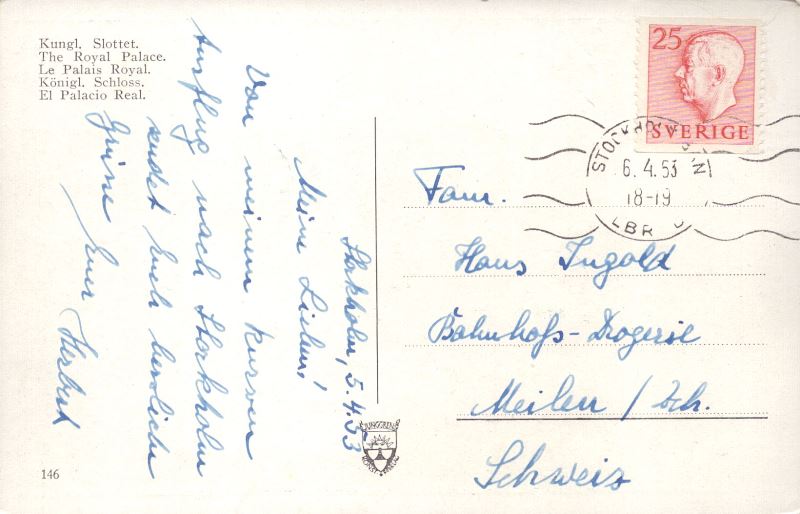 Kungl. Slottet.
The Royal Palace.
Le Palais Royal.
Königl. Schloss.
El Palacio Real.
Stockholm, 5.4.53
Meine Lieben!
Von meinem kurzen
Ausflug nach Stockholm
sendet Euch herzliche
Grüsse Euer Herbert
146
25
SVERIGE
6.4.53
18-19
Fam.
Hans Ingold
Bahnhofs-Drogerie
Meilen / Zch.
Schweiz